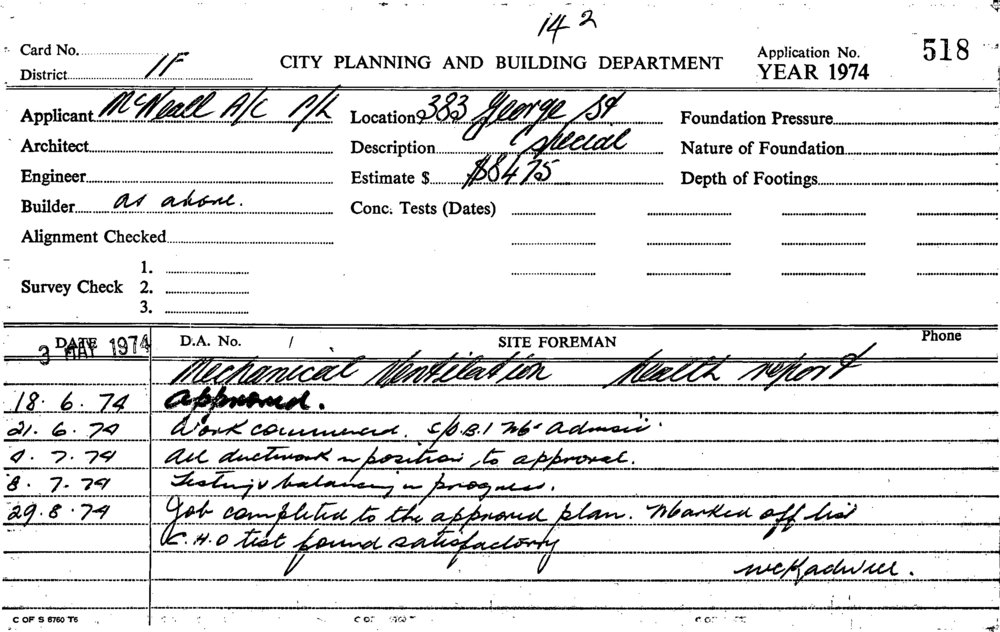 142
Card No.
Application No. 518
District 1F
CITY PLANNING AND BUILDING DEPARTMENT
YEAR 1974
Applicant McNeall A/C P/L Location 383 George St Foundation Pressure
Architect Description special Nature of Foundation
Engineer Estimate $ $8475 Depth of Footings
Builder as above. Conc. Tests (Dates)
Alignment Checked
1.
Survey Check 2.
3.
DATE D.A. No. / SITE FOREMAN Phone
3 MAY 1974
Mechanical Ventilation health report
18. 6. 74 approved.
21. 6. 74 Work commenced.
4. 7. 74 All ductwork in position, to approval.
8. 7. 74 Testing & balancing in progress.
29. 8. 74 Job completed to the approved plan. Marked off list
C.H.O test found satisfactory
C OF S 6760 T6